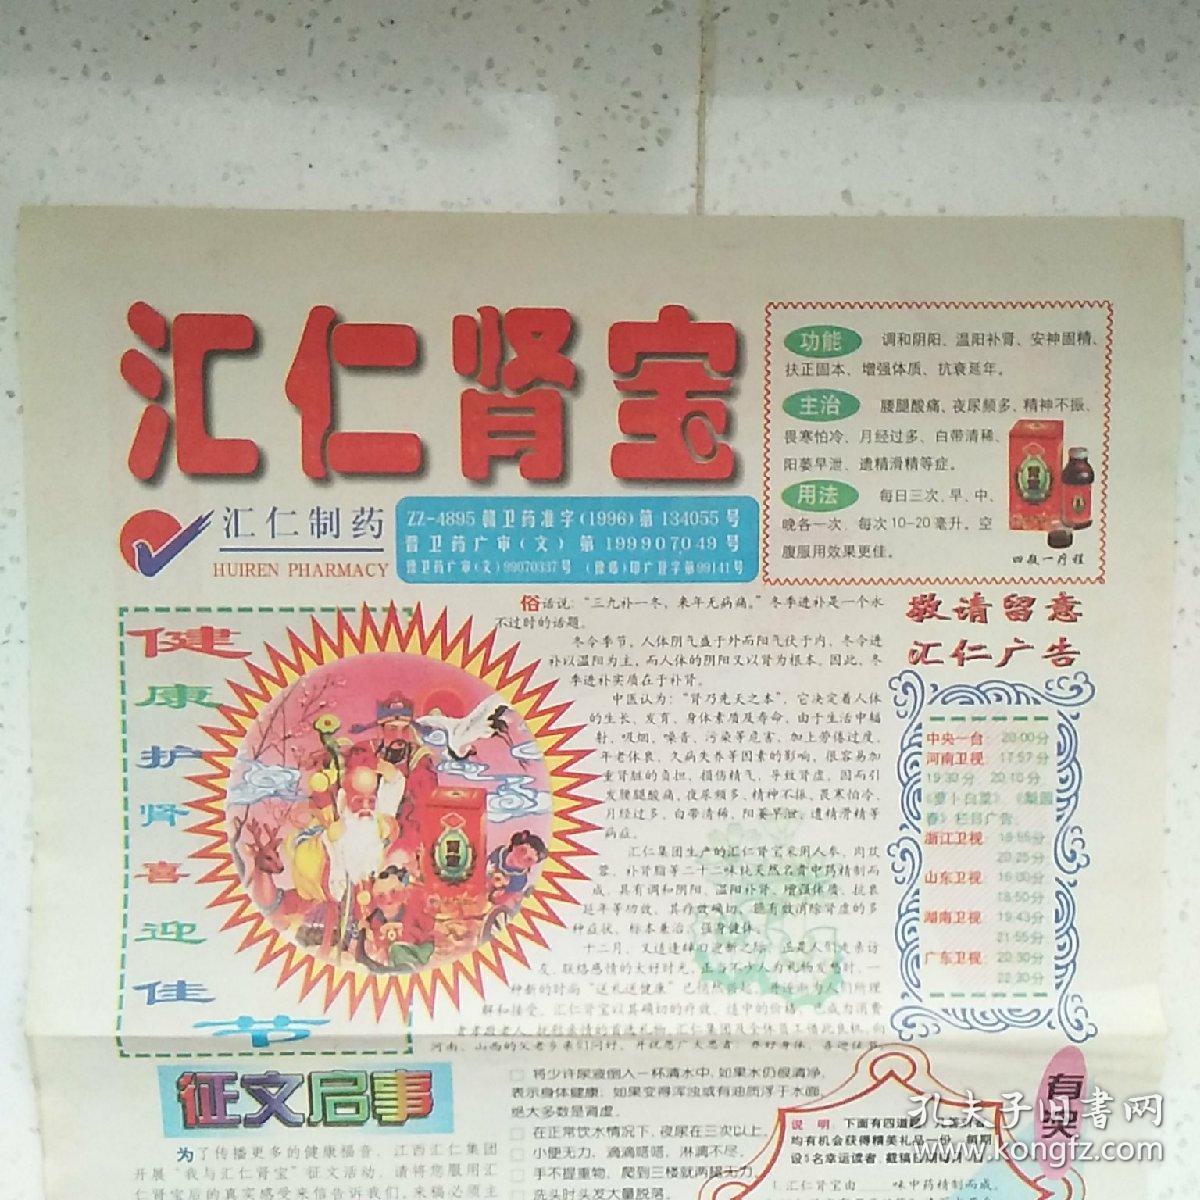 汇仁肾宝
汇仁制药
HUIREN PHARMACY
ZZ-4895 赣卫药准字(1996)第 134055 号
晋卫药广审(文)第 199907049 号
豫卫药广审(文)99070337号 (豫郑)印广登字第99141号
功能 调和阴阳、温阳补肾、安神固精、
扶正固本、增强体质、抗衰延年。
主治 腰腿酸痛、夜尿频多、精神不振、
畏寒怕冷、月经过多、白带清稀、
阳萎早泄、遗精滑精等症。
用法 每日三次,早、中、
晚各一次,每次10-20毫升。空
腹服用效果更佳。
四瓶一疗程
健康护肾喜迎佳节
俗话说:“三九补一冬,来年无病痛。”冬季进补是一个永
不过时的话题。
冬令季节,人体阴气盛于外而阳气伏于内,冬令进
补以温阳为主,而人体的阴阳又以肾为根本,因此,冬
季进补实质在于补肾。
中医认为:“肾乃先天之本”,它决定着人体
的生长、发育、身体素质及寿命,由于生活中辐
射、吸烟、噪音、污染等危害,加上劳倦过度、
年老体衰、久病失养等因素的影响,很容易加
重肾脏的负担,损伤精气,导致肾虚,因而引
发腰腿酸痛、夜尿频多、精神不振、畏寒怕冷、
月经过多、白带清稀、阳萎早泄、遗精滑精等
病症。
汇仁集团生产的汇仁肾宝采用人参、肉苁
蓉、补骨脂等二十二味纯天然名贵中药精制而
成,具有调和阴阳、温阳补肾、增强体质、抗衰
延年等功效,其疗效确切,能有效消除肾虚的多
种症状,标本兼治,强身健体。
十二月,又适逢辞旧迎新之际,正是人们走亲访
友、联络感情的大好时光,正当不少人为礼物发愁时,一
种新的时尚“送礼送健康”已悄然兴起,并逐渐为人们所理
解和接受。汇仁肾宝以其确切的疗效、适中的价格,已成为消费
者孝敬老人、抚慰亲情的首选礼物,汇仁集团及全体员工借此良机,向
河南、山西的父老乡亲们问好,并祝愿广大患者:养好身体,喜迎佳节
敬请留意
汇仁广告
中央一台: 20:00分
河南卫视: 17:57分
19:30分 20:10分
《萝卜白菜》、《梨园
春》栏目广告
浙江卫视: 18:55分
20:25分
山东卫视: 16:00分
18:50分
湖南卫视: 19:43分
21:55分
广东卫视: 20:30分
22:30分
征文启事
为了传播更多的健康福音,江西汇仁集团
开展“我与汇仁肾宝”征文活动,请将您服用汇
仁肾宝后的真实感受来信告诉我们,来稿必须主
□ 将少许尿液倒入一杯清水中,如果水仍很清净,
表示身体健康,如果变得浑浊或有油质浮于水面,
绝大多数是肾虚。
□ 在正常饮水情况下,夜尿在三次以上。
□ 小便无力,滴滴嗒嗒,淋漓不尽。
□ 手不提重物,爬到三楼就两腿无力。
□ 洗头时头发大量脱落。
有奖
说明:下面有四道题,凡答对者
均有机会获得精美礼品一份,每期
设5名幸运读者,截稿日期每月
1.汇仁肾宝由____味中药精制而成。
孔夫子旧书网
www.kongfz.com